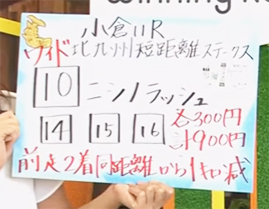 小倉11R
ワイド 北九州短距離ステークス
10 ニシノラッシュ
14 15 16 各300円
計900円
前走2着同距離から1キロ減